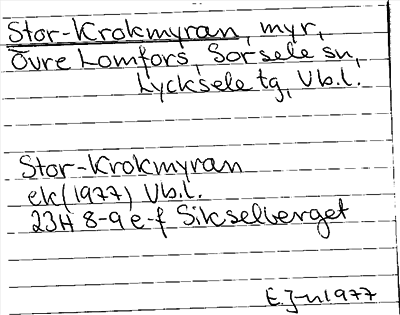 Stor-Krokmyran, myr,
Övre Lomfors, Sorsele sn,
Lycksele tg, Vb.l.
Stor-Krokmyran
ek (1977) Vb.l.
23H 8-9 e-f Sikselberget
E.J-n 1977